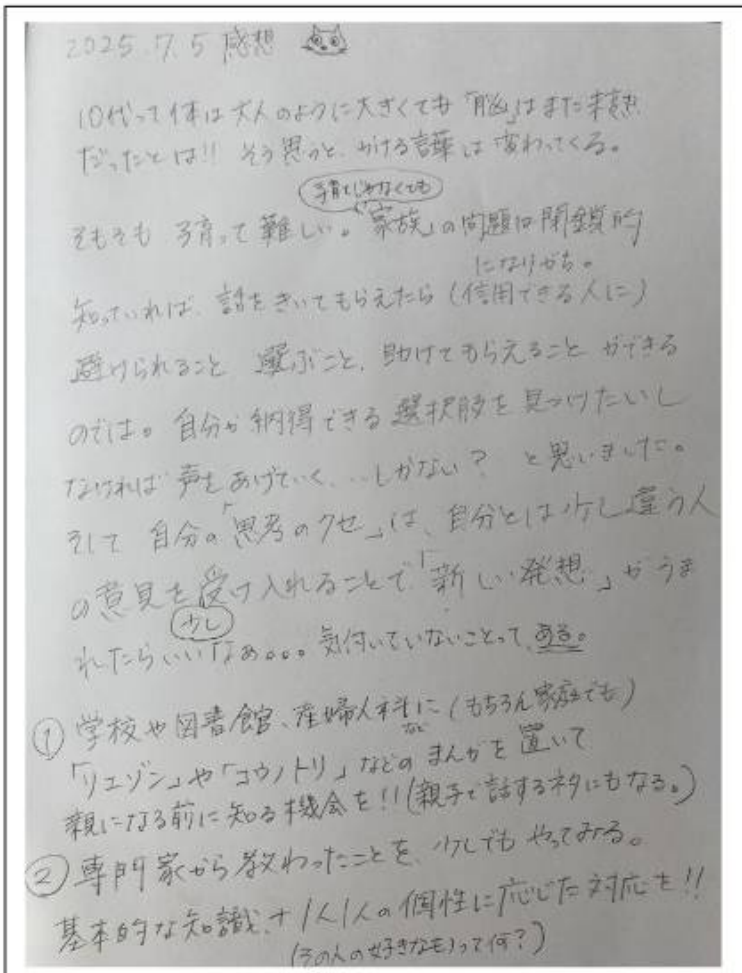 2025.7.5 感想
10代って体は大人のように大きくても「脳」はまだ未熟
だったとは!! そう思うと、かける言葉は変わってくる。
子育てじゃなくても
そもそも 子育って難しい。「家族」の問題は閉鎖的
になりがち。
知っていれば、話をきいてもらえたら(信用できる人に)
避けられること 選ぶこと、助けてもらえること ができる
のでは。自分が納得できる選択肢を見つけたいし
なければ声をあげていく、…しかない? と思いました。
そして 自分の「思考のクセ」は、自分とは少し違う人
の意見を受け入れることで「新しい発想」がうま
少し
れたらいいなぁ。。。気付いていないことって、ある。
① 学校や図書館、産婦人科に(もちろん家庭でも)
など
「リエゾン」や「コウノトリ」などの まんがを置いて
親になる前に知る機会を!!(親子で話するネタにもなる。)
② 専門家から教わったことを、少しでも やってみる。
基本的な知識、+1人1人の個性に応じた対応を!!
(その人の好きなもって何?)